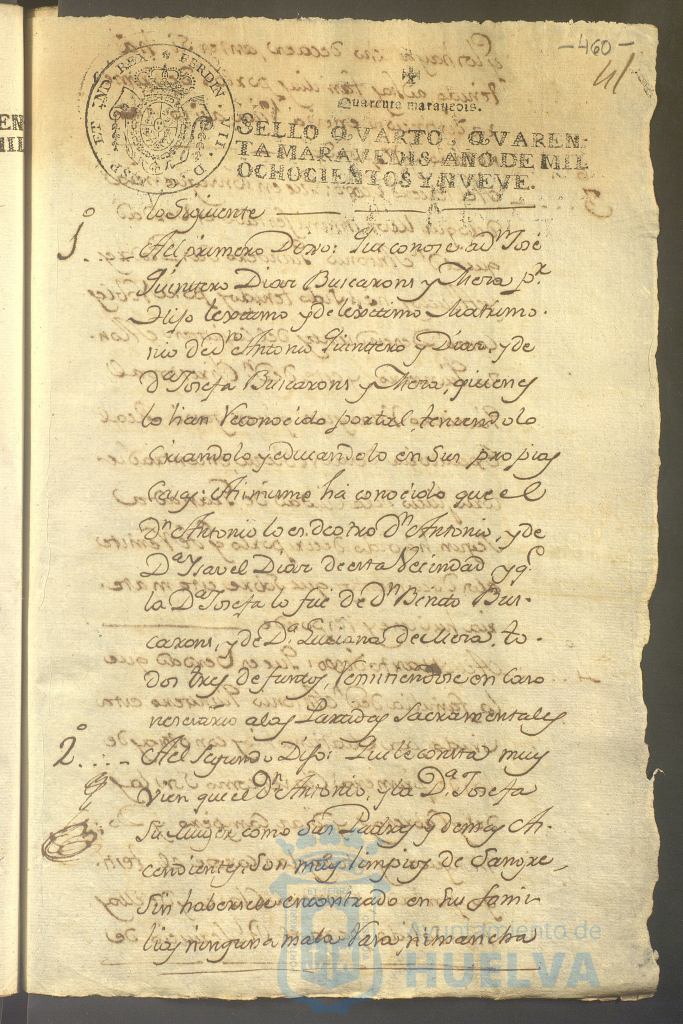 -460-
41
FERDIN. VII. D. G. HISP. ET IND. REX.
Quarenta maravedis.
SELLO QVARTO, QVAREN-
TA MARAVEDIS, AÑO DE MIL
OCHOCIENTOS Y NVEVE.
lo Siguiente
1º Al primero Dixo: Que conose a dn José
Quintero Diaz Buscarons y Mora pr
Hijo lexitimo y de lexitimo Matrimo-
nio de Dn Antonio Quintero y Diaz, y de
Da Josefa Buscarons y Mora, quienes
lo han reconocido por tal, teniendolo
Criandolo y educandolo en sus propias
Casas: Asimismo há conocido que el
Dn Antonio lo es de otro Dn Antonio, y de
Da Ysavel Diaz de esta Vecindad y qe
la Da Josefa lo fue de dn Benito Bus-
carons, y de Da Luciana de Mora, to-
dos tres defuntos, remitiendose en caso
nesesario a las Partidas Sacramentales
2º Al Segundo Dijo: Que le consta muy
Vien que el Dn Antonio, y la Da Josefa
Su Muger como Sus Padres y demas As-
cendientes, Son muy limpios de Sangre,
Sin haberse encontrado en Su fami-
lia ninguna mala Raza ni mancha
Ayuntamiento de
HUELVA